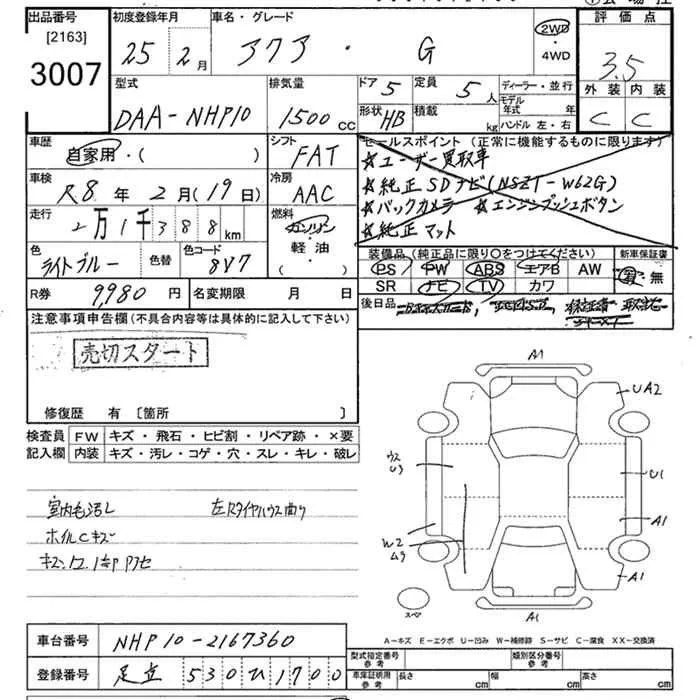 出品番号
[2163]
3007
初度登録年月
25年 2月
車名・グレード
アクア・ G
2WD
・
4WD
評価点
3.5
外装 内装
C C
型式
DAA-NHP10
排気量
1500 CC
ドア 5
形状 HB
定員 5 人
積載 kg
ディーラー・並行
モデル年式 年
ハンドル 左・右
車歴
自家用・( )
シフト
FAT
車検
R8年 2月(19日)
冷房
AAC
走行
2万1千388km
燃料
ガソリン
軽・油
( )
色
ライトブルー
色替
色コード
8V7
R券 9,980 円
名変期限 月 日
セールスポイント(正常に機能するものに限ります)
☆ユーザー買取車
☆純正SDナビ(NSZT-W62G)
☆バックカメラ ☆エンジンプッシュボタン
☆純正マット
装備品(純正品に限り○をつけてください)
PS PW ABS エアB AW
SR ナビ TV カワ
新車保証書
有・無
後日品
注意事項申告欄(不具合内容等は具体的に記入して下さい)
売切スタート
修復歴 有 [箇所 ]
検査員
記入欄
FW キズ・飛石・ヒビ割・リペア跡・×要
内装 キズ・汚レ・コゲ・穴・スレ・キレ・破レ
ホイルCキズ
A1
UA2
ウス
U3
U1
A1
W2
A1
スペア
A1
A-キズ E-エクボ U-凹み W-補修跡 S-サビ C-腐食 XX-交換済
車台番号 NHP10-2167360
登録番号 足立 530 ひ 1700
型式指定番号
参考
類別区分番号
参考
車庫証明用
参考
長さ cm 幅 cm 高さ cm